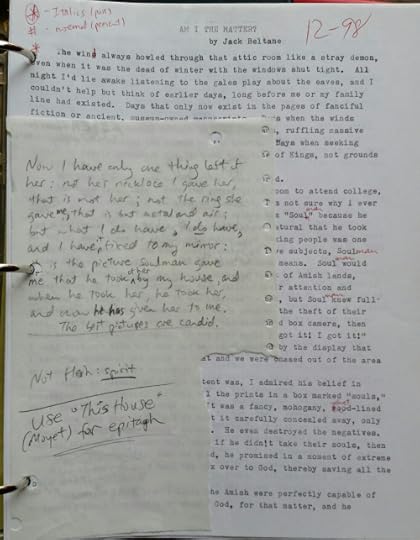 * - Italics (pen)
# - normal (pencil)
*
12-98
AM I THE MATTER?
by Jack Beltane
The wind always howled through that attic room like a stray demon,
even when it was the dead of winter with the windows shut tight. All
night I'd lie awake listening to the gales play about the eaves, and I
couldn't help but think of earlier days, long before me or my family
line had existed. Days that only now exist in the pages of fanciful
fiction or ancient, museum-owned manuscripts. Days when the winds
, ruffling massive
Days when seeking
of Kings, not grounds
d.
oon to attend college,
s not sure why I ever
"Soulman" because he
atural that he took
ing people was one
ve subjects, Soulman
means. Soulman would
of Amish lands,
r attention and
, but Soulman knew full-
the theft of their
d box camera, then
got it! I got it!"
by the display that
at and we were chased out of the area
tent was, I admired his belief in
l the prints in a box marked "souls,"
t was a fancy, mahogany, -lined
t it carefully concealed away, only
. He even destroyed the negatives.
if he didn't take their souls, then
d, he promised in a moment of extreme
x over to God, thereby saving all the
he Amish were perfectly capable of
God, for that matter, and he
Now I have only one thing left of
her: not her necklace I gave her,
that is not her; not the ring she
gave me, that is but metal and air;
but what I do have, I do have,
and I have fixed to my mirror:
is the picture Soulman gave
me that he took of her by my house, and
when he took her, he took her,
and now he has given her to me.
The best pictures are candid.
Not flesh: spirit
Use "This House"
(Moyet) for epitagh